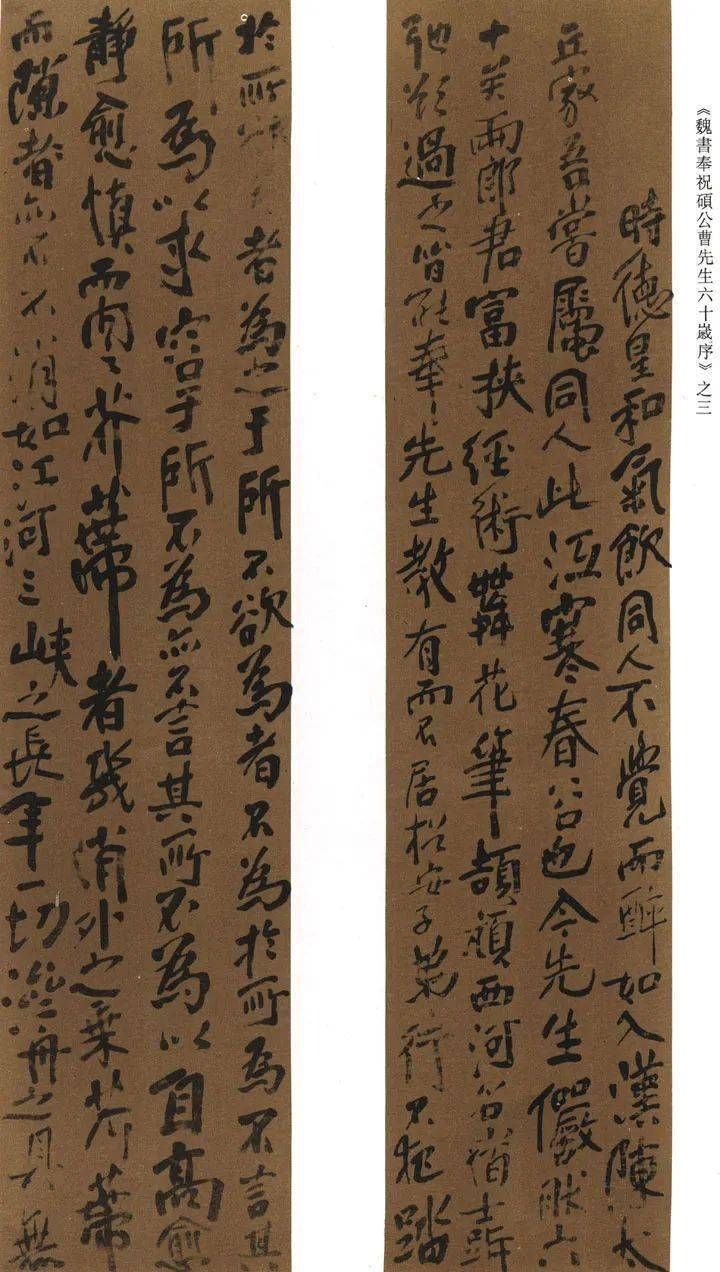 《魏書奉祝碩公曹先生六十歲序》之三
時德星和氣飲同人不覺而醉如入漢陳太
丘家吾嘗屬同人此沍寒春公也今先生儼然六
十矣兩郎君富挾經術 花筆頡頏西河台宿士
弛 過之皆能奉先生教有而不居 安子弟行不犯
於所 者為之于所不欲為者不為於所為不言其
所為以求容于所不為亦不言其所不為以自高愈
靜愈慎而向之芥蔕者 消外之乘芥蔕
而隙者亦不 不消如江河三峽之長年一切 舟之具無